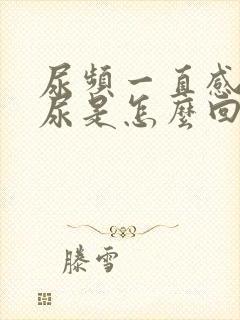 尿頻一直感
尿是怎麼回
滕雪